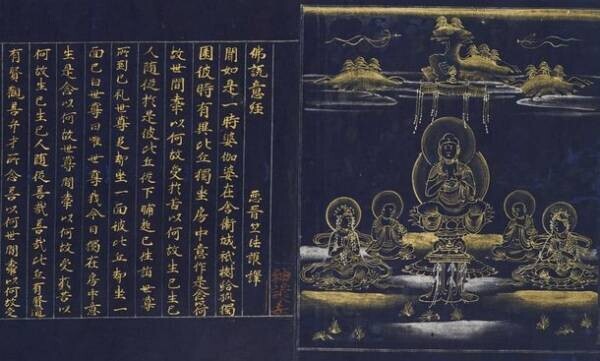 佛說意經
西晉竺法護譯
聞如是一時婆伽婆在舍衛城祇樹給孤獨
園彼時有異比丘獨坐房中意作是念何
故世間牽以何故受於苦以何故生已生已
人隨從於是彼比丘從下晡起已往詣世尊
所到已礼世尊足却坐一面彼比丘却坐一
面已白世尊曰唯世尊我今日獨在房中意
生是念以何故世間牽以何故受於苦以
何故生已生已人隨從善哉善哉比丘有賢道
有賢觀善辯才所念善以何世間牽以何故受
神護寺